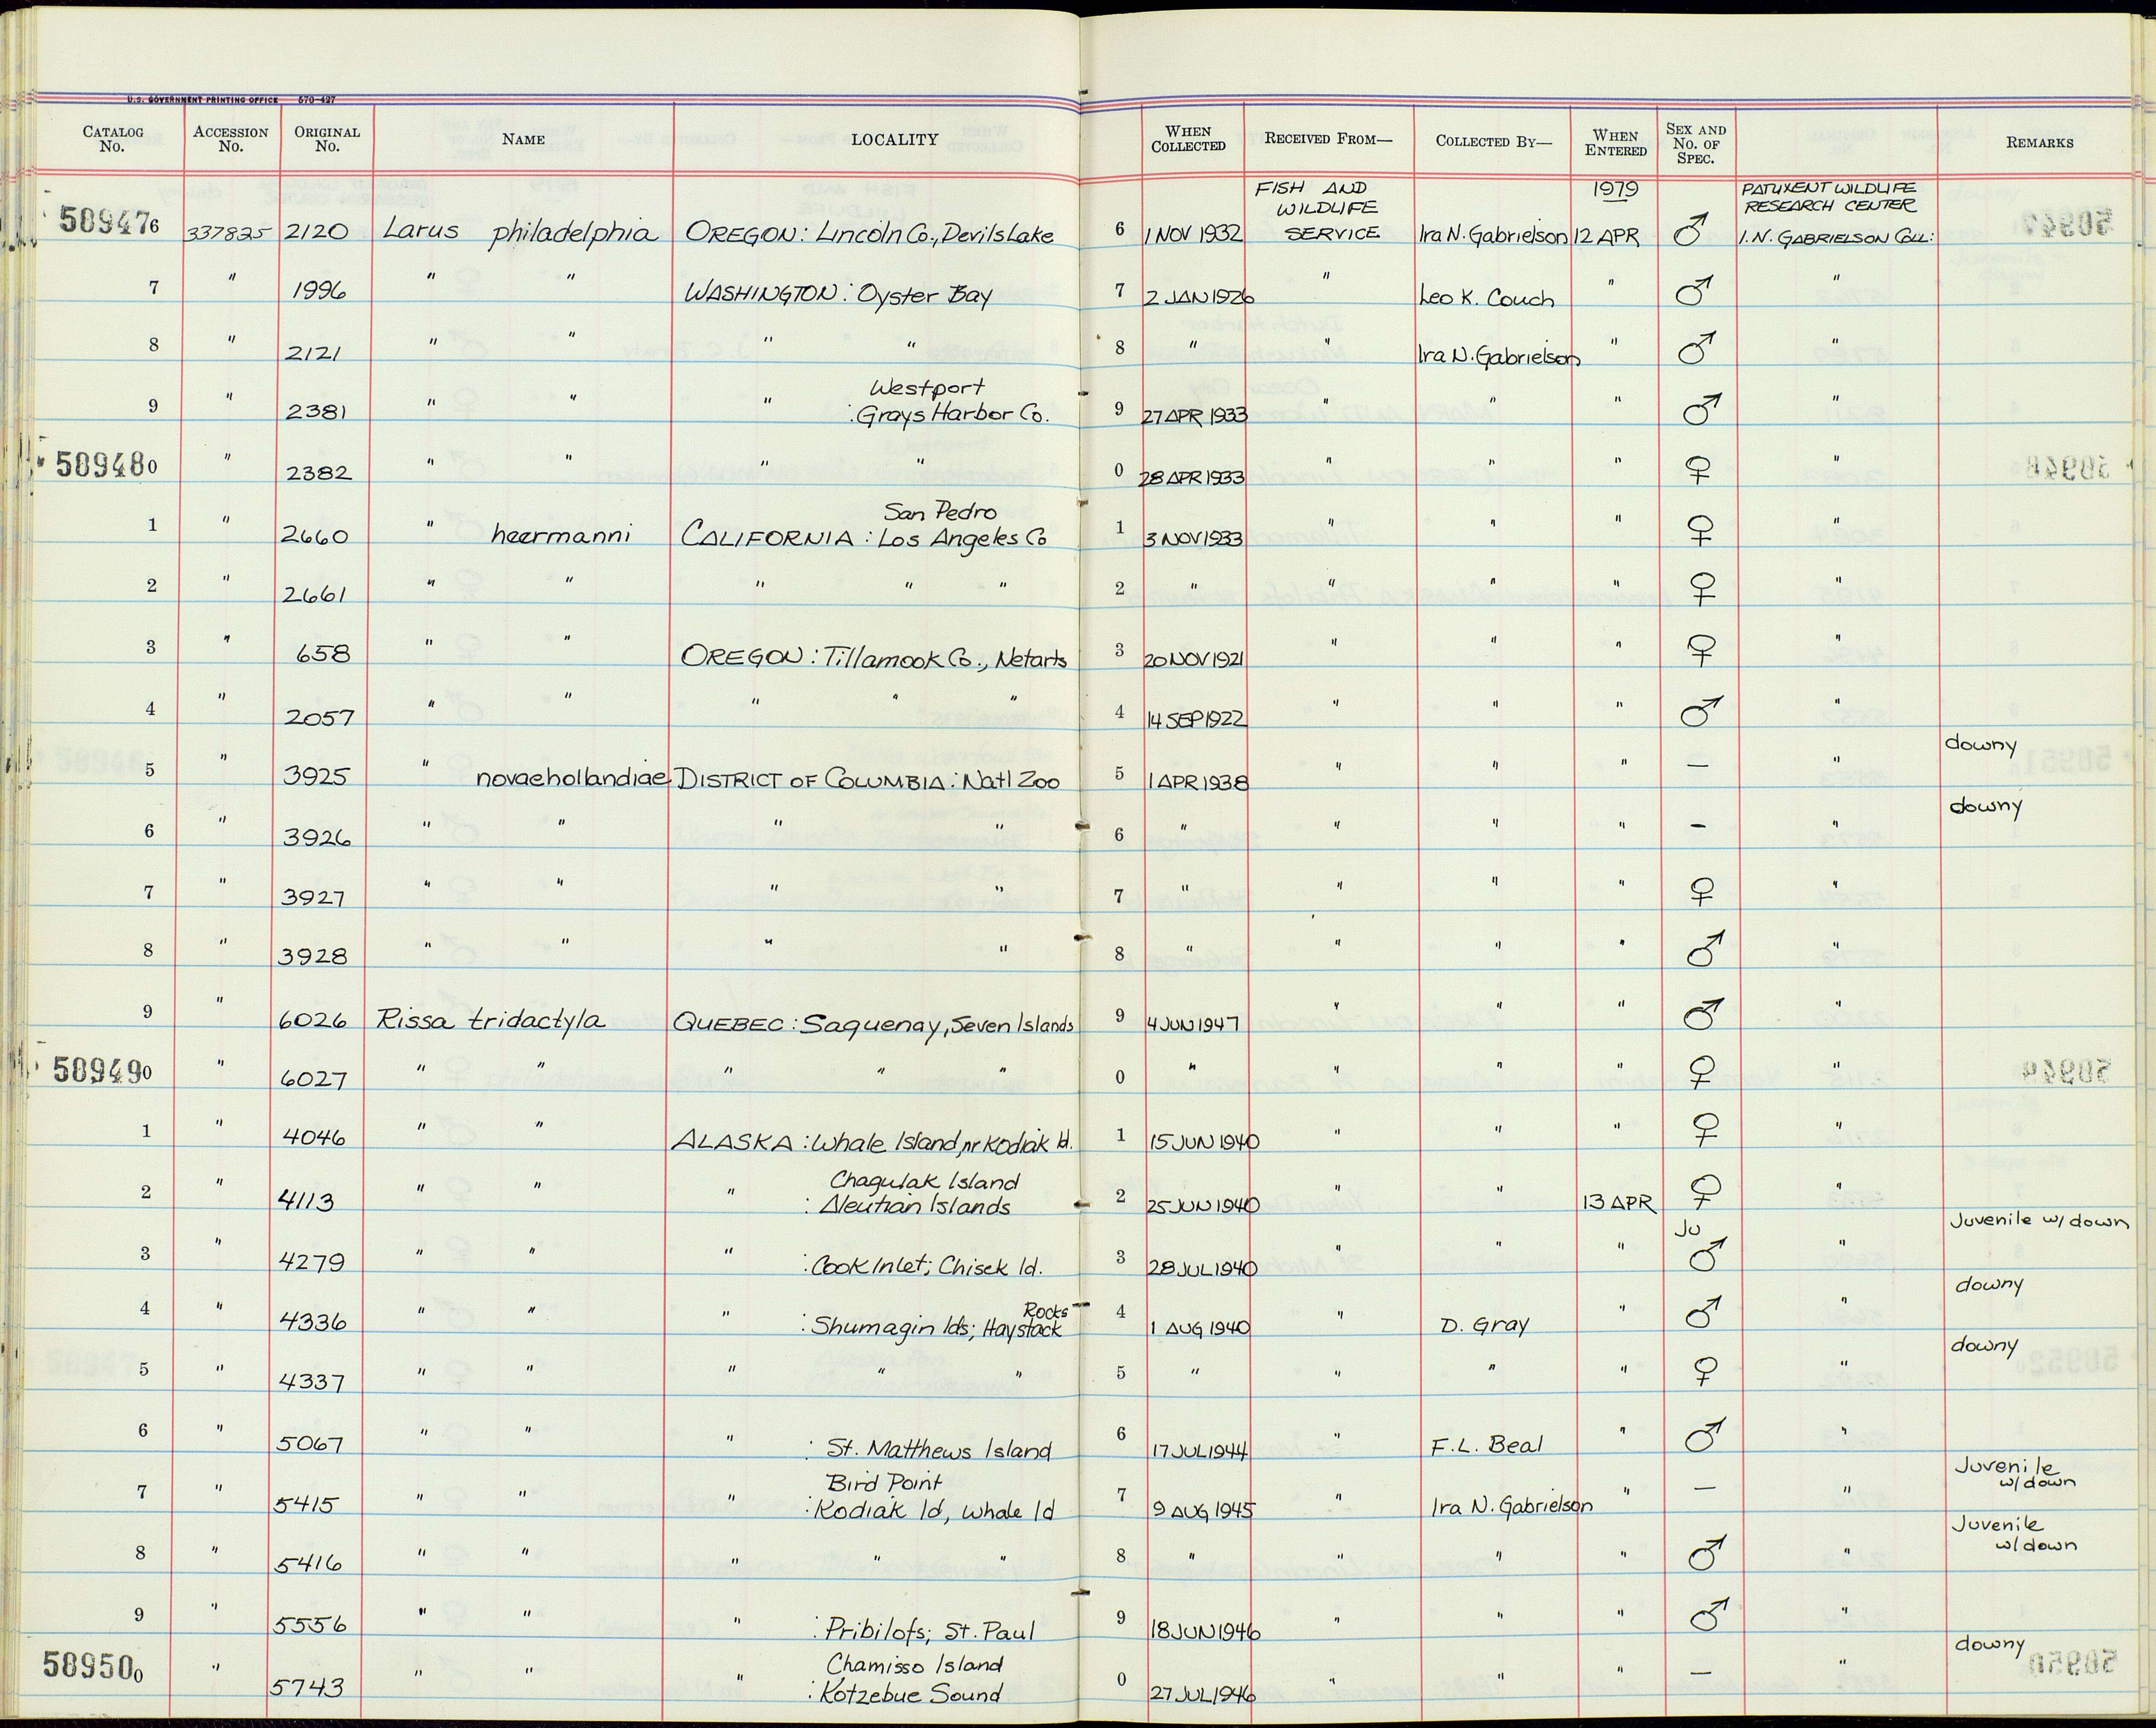 U.S. GOVERNMENT PRINTING OFFICE 570-427
CATALOG No. ACCESSION No. ORIGINAL No. NAME LOCALITY WHEN COLLECTED RECEIVED FROM— COLLECTED BY— WHEN ENTERED SEX AND No. OF SPEC. REMARKS
509476 337825 2120 Larus philadelphia OREGON: Lincoln Co., Devils Lake 6 1 NOV 1932 FISH AND WILDLIFE SERVICE Ira N. Gabrielson 1979 12 APR ♂ PATUXENT WILDLIFE RESEARCH CENTER I.N. GABRIELSON COLL:
7 " 1996 " " WASHINGTON: Oyster Bay 7 2 JAN 1926 " Leo K. Couch " ♂ "
8 " 2121 " " " " 8 " " Ira N. Gabrielson " ♂ "
9 " 2381 " " " Westport : Grays Harbor Co. 9 27 APR 1933 " " " ♂ "
509480 " 2382 " " " " 0 28 APR 1933 " " " ♀ "
1 " 2660 " heermanni CALIFORNIA: San Pedro Los Angeles Co 1 3 NOV 1933 " " " ♀ "
2 " 2661 " " " " " 2 " " " " ♀ "
3 " 658 " " OREGON: Tillamook Co., Netarts 3 20 NOV 1921 " " " ♀ "
4 " 2057 " " " " " 4 14 SEP 1922 " " " ♂ "
5 " 3925 " novaehollandiae DISTRICT OF COLUMBIA: Nat'l Zoo 5 1 APR 1938 " " " — " downy
6 " 3926 " " " " 6 " " " " — " downy
7 " 3927 " " " " 7 " " " " ♀ "
8 " 3928 " " " " 8 " " " " ♂ "
9 " 6026 Rissa tridactyla QUEBEC: Saquenay, Seven Islands 9 4 JUN 1947 " " " ♂ "
509490 " 6027 " " " " " 0 " " " " ♀ "
1 " 4046 " " ALASKA: Whale Island, nr Kodiak Id. 1 15 JUN 1940 " " " ♀ "
2 " 4113 " " " Chagulak Island : Aleutian Islands 2 25 JUN 1940 " " 13 APR ♀ "
3 " 4279 " " " : Cook Inlet; Chisek Id. 3 28 JUL 1940 " " " Ju ♂ " Juvenile w/ down
4 " 4336 " " " : Shumagin Ids; Haystack Rocks 4 1 AUG 1940 " D. Gray " ♂ " downy
5 " 4337 " " " " " 5 " " " " ♀ " downy
6 " 5067 " " " : St. Matthews Island 6 17 JUL 1944 " F.L. Beal " ♂ "
7 " 5415 " " " Bird Point : Kodiak Id, Whale Id 7 9 AUG 1945 " Ira N. Gabrielson " — " Juvenile w/ down
8 " 5416 " " " " " 8 " " " " ♂ " Juvenile w/ down
9 " 5556 " " " : Pribilofs; St. Paul 9 18 JUN 1946 " " " ♂ "
509500 " 5743 " " " Chamisso Island : Kotzebue Sound 0 27 JUL 1946 " " " — " downy